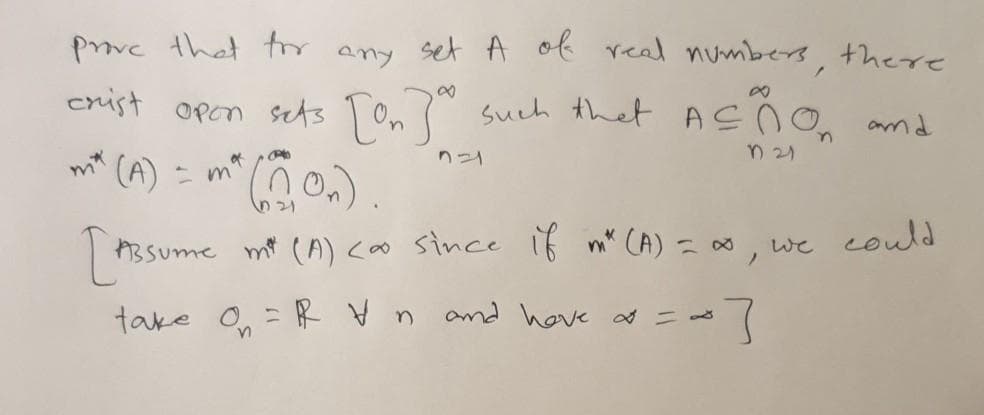 prove that for any set A of real numbers, there
exist open sets [O_n]_{n=1}^∞ such that A ⊆ ∩_{n=1}^∞ O_n and
m* (A) = m* (∩_{n=1}^∞ O_n).
[Assume m* (A) < ∞ since if m* (A) = ∞, we could
take O_n = ℝ ∀ n and have ∞ = ∞]